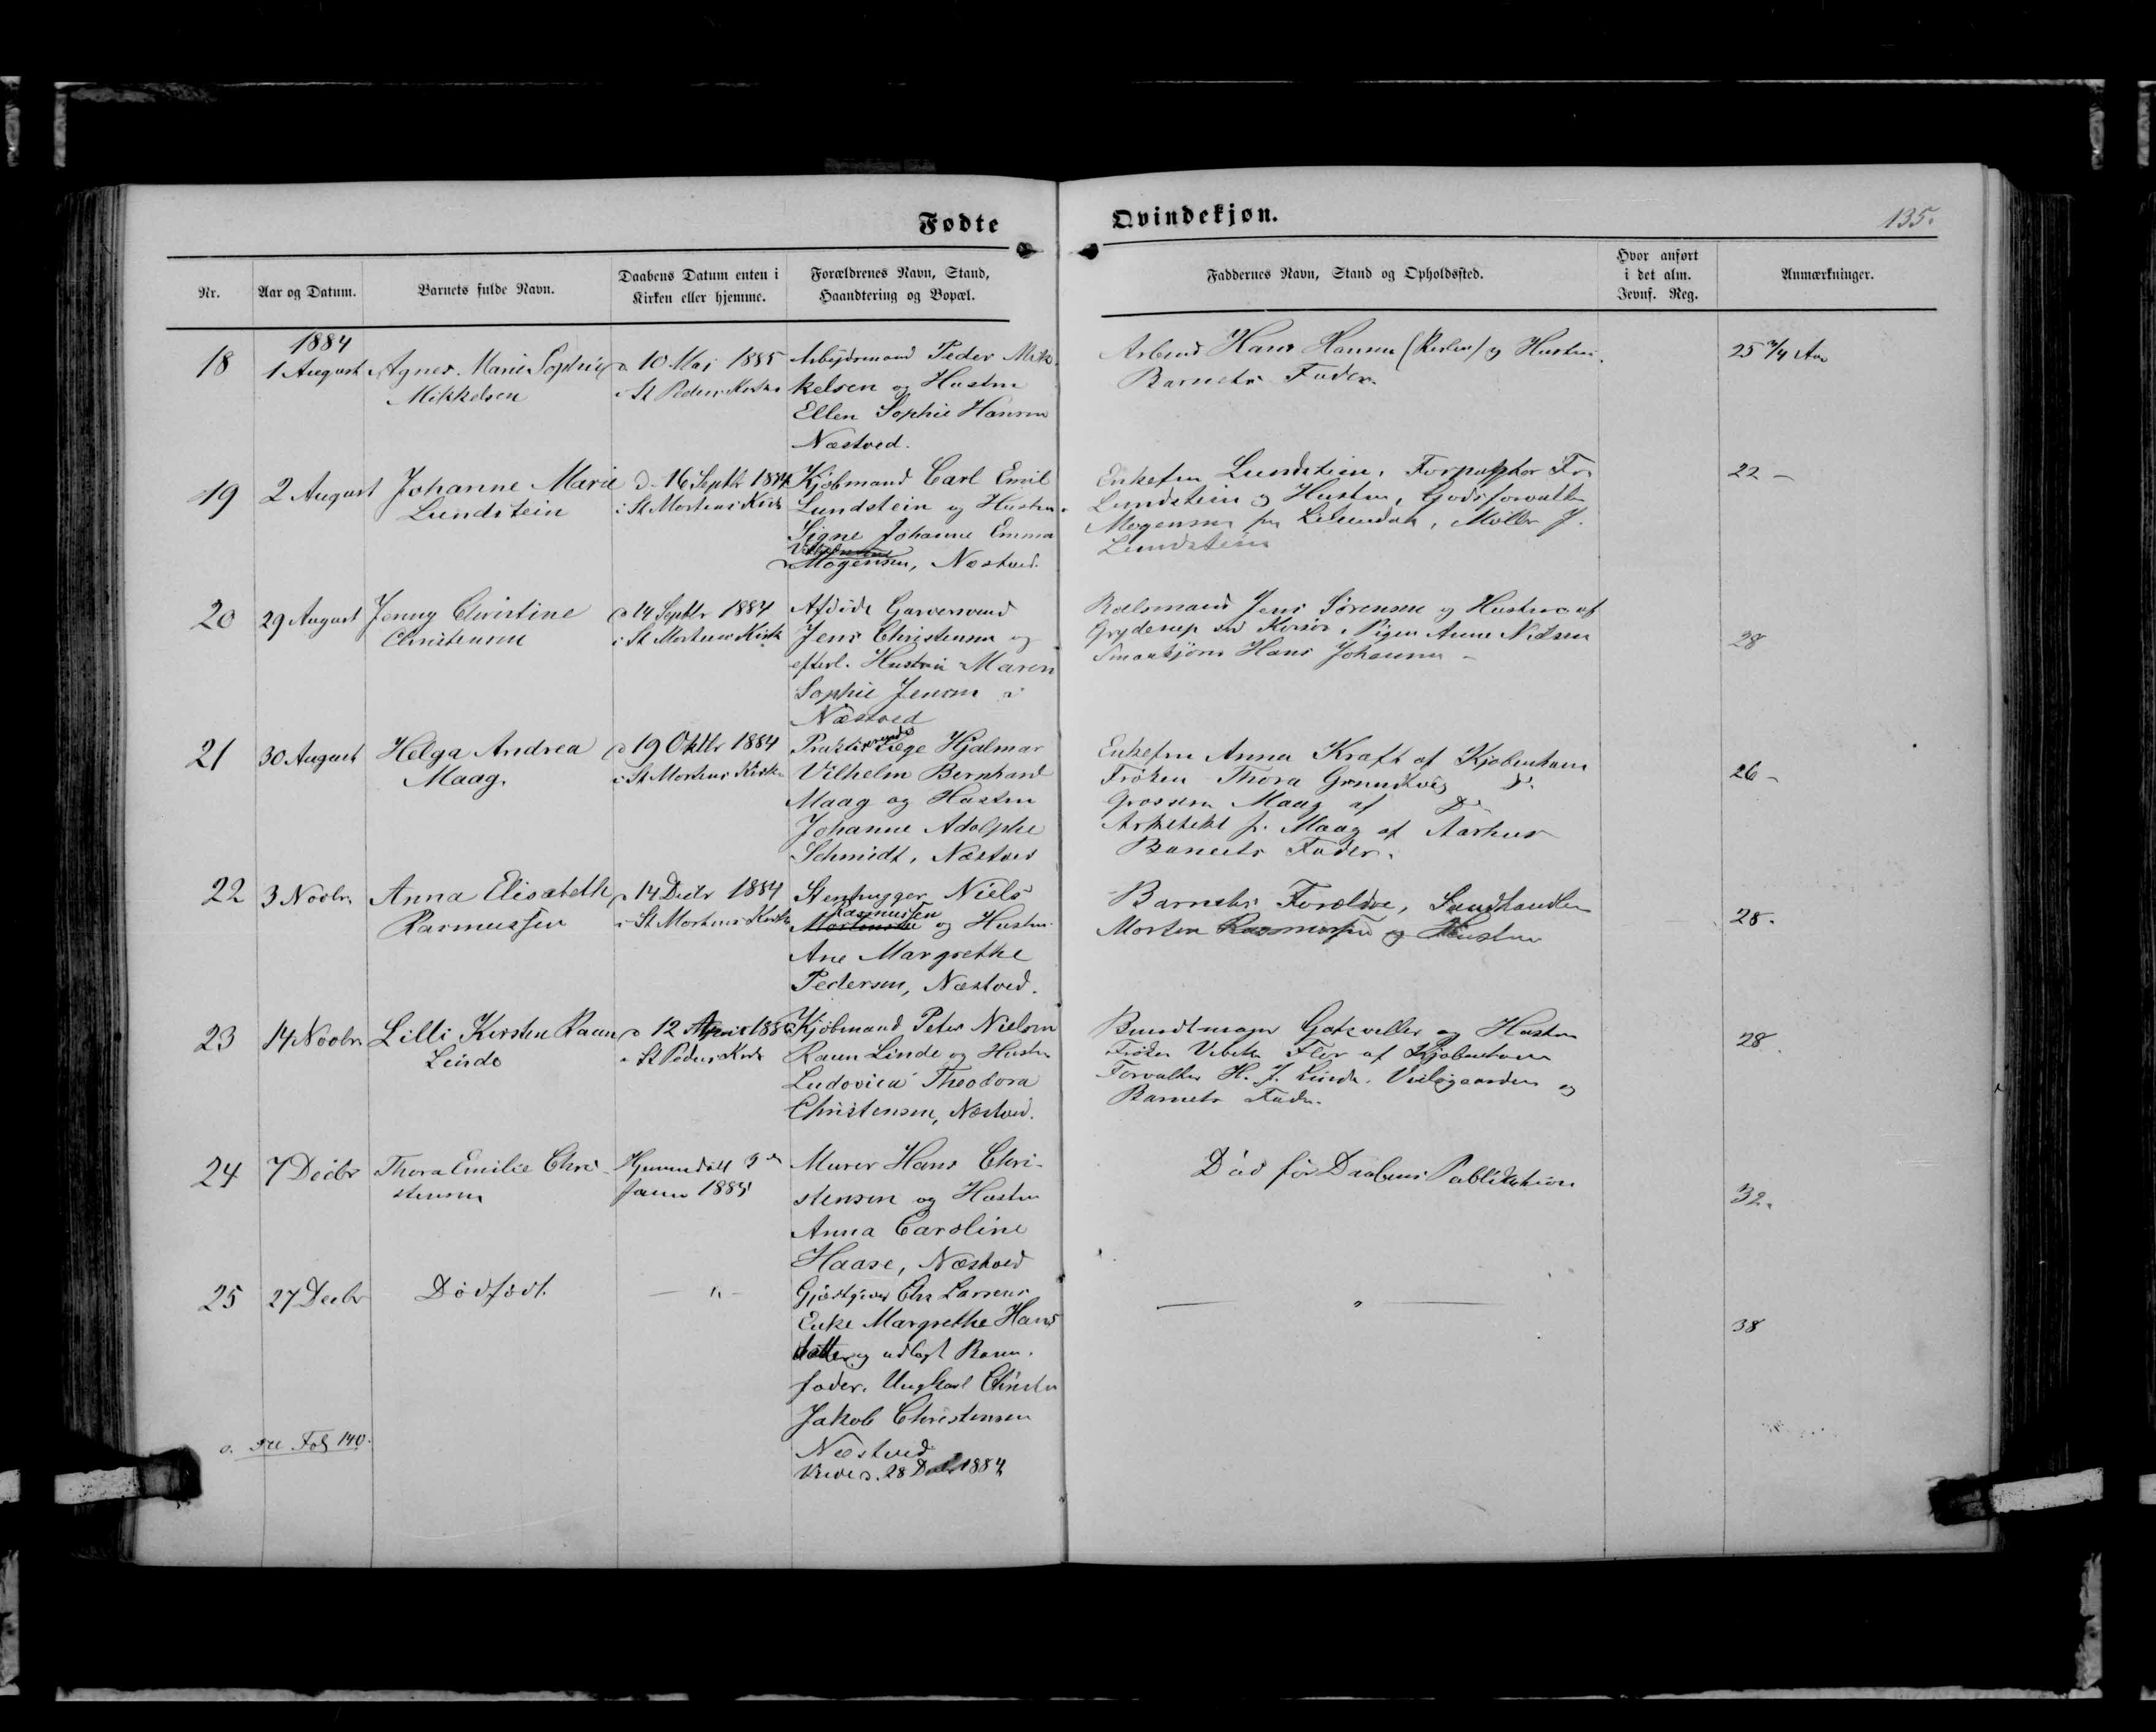 Fødte
Qvindekjøn.
135.
Nr.
Aar og Datum.
Barnets fulde Navn.
Daabens Datum enten i
Kirken eller hjemme.
Forældrenes Navn, Stand,
Haandtering og Bopæl.
Faddernes Navn, Stand og Opholdssted.
Hvor anført
i det alm.
Jevnf. Reg.
Anmærkninger.
1884
18
1 August
Agnes Marie Sophie
Mikkelsen
d 10 Mai 1885
i St Peders Kirke
Arbejdsmand Peder Mik-
kelsen og Hustru
Ellen Sophie Hansen
Næstved.
Hans Hansen og Hustru.
Barnets Fader.
25 3/4 Aar
19
2 August
Johanne Marie
Lundstein
d. 16 Septbr 1884
i St Mortens Kirke
Kjøbmand Carl Emil
Lundstein og Hustru
Signe Johanne Emma
Mogensen, Næstved.
Enkefru Lundstein, Forpagter Fr.
Lundstein og Hustru, Godsforvalter
Mogensen fra Lisenlund, Møller J.
Lundstein
22 –
20
29 August
Jenny Christine
Christensen
d 14 Septbr 1884
i St Mortens Kirke
Afdøde Garversvend
Jens Christensen og
efterl. Hustru Maren
Sophie Jensen i
Næstved
Boelsmand Jens Sørensen og Hustru af
Gryderup ved Korsør, Pigen Anne Nielsen
Hans Johansen –
28
21
30 August
Helga Andrea
Maag.
d 19 Oktbr 1884
i St Mortens Kirke
Praktiserende Læge Hjalmar
Vilhelm Bernhard
Maag og Hustru
Johanne Adolphe
Schmidt, Næstved
Enkefru Anna Kraft af Kjøbenhavn
Frøken Thora Grundtvig Do.
Grosserer Maag af Do
Arkitekt J. Maag af Aarhus
Barnets Fader.
26 –
22
3 Novbr.
Anna Elisabeth
Rasmussen
d 14 Decbr 1884
i St Mortens Kirke
Stenhugger Niels
Rasmussen
Mortensen og Hustru
Ane Margrethe
Pedersen, Næstved.
Barnets Forældre, Sandhandler
Morten Rasmussen og Hustru
28.
23
14 Novbr.
Lilli Kirsten Raun
Linde
d 12 April 1885
i St Peders Kirke
Kjøbmand Peter Nielsen
Raun Linde og Hustru
Ludovica Theodora
Christensen, Næstved.
Bundtmager og Hustru
Frøken Vibeke Flor af Kjøbenhavn
Forvalter H. J. Linde, og
Barnets Fader.
28.
24
7 Decbr
Thora Emilie Chri-
stensen
Hjemmedøbt 3n
Januar 1885
Murer Hans Chri-
stensen og Hustru
Anna Caroline
Haase, Næstved
Død før Daabens Publikation
32.
25
27 Decbr
Dødfødt.
— " —
Gjæstgiver Chr Larsens
Enke Margrethe Hans
datter, og udlagt Barne-
fader. Ungkarl Christen
Jakob Christensen
Næstved
28 Decbr 1884
— " —
38
o. see Fol 140.